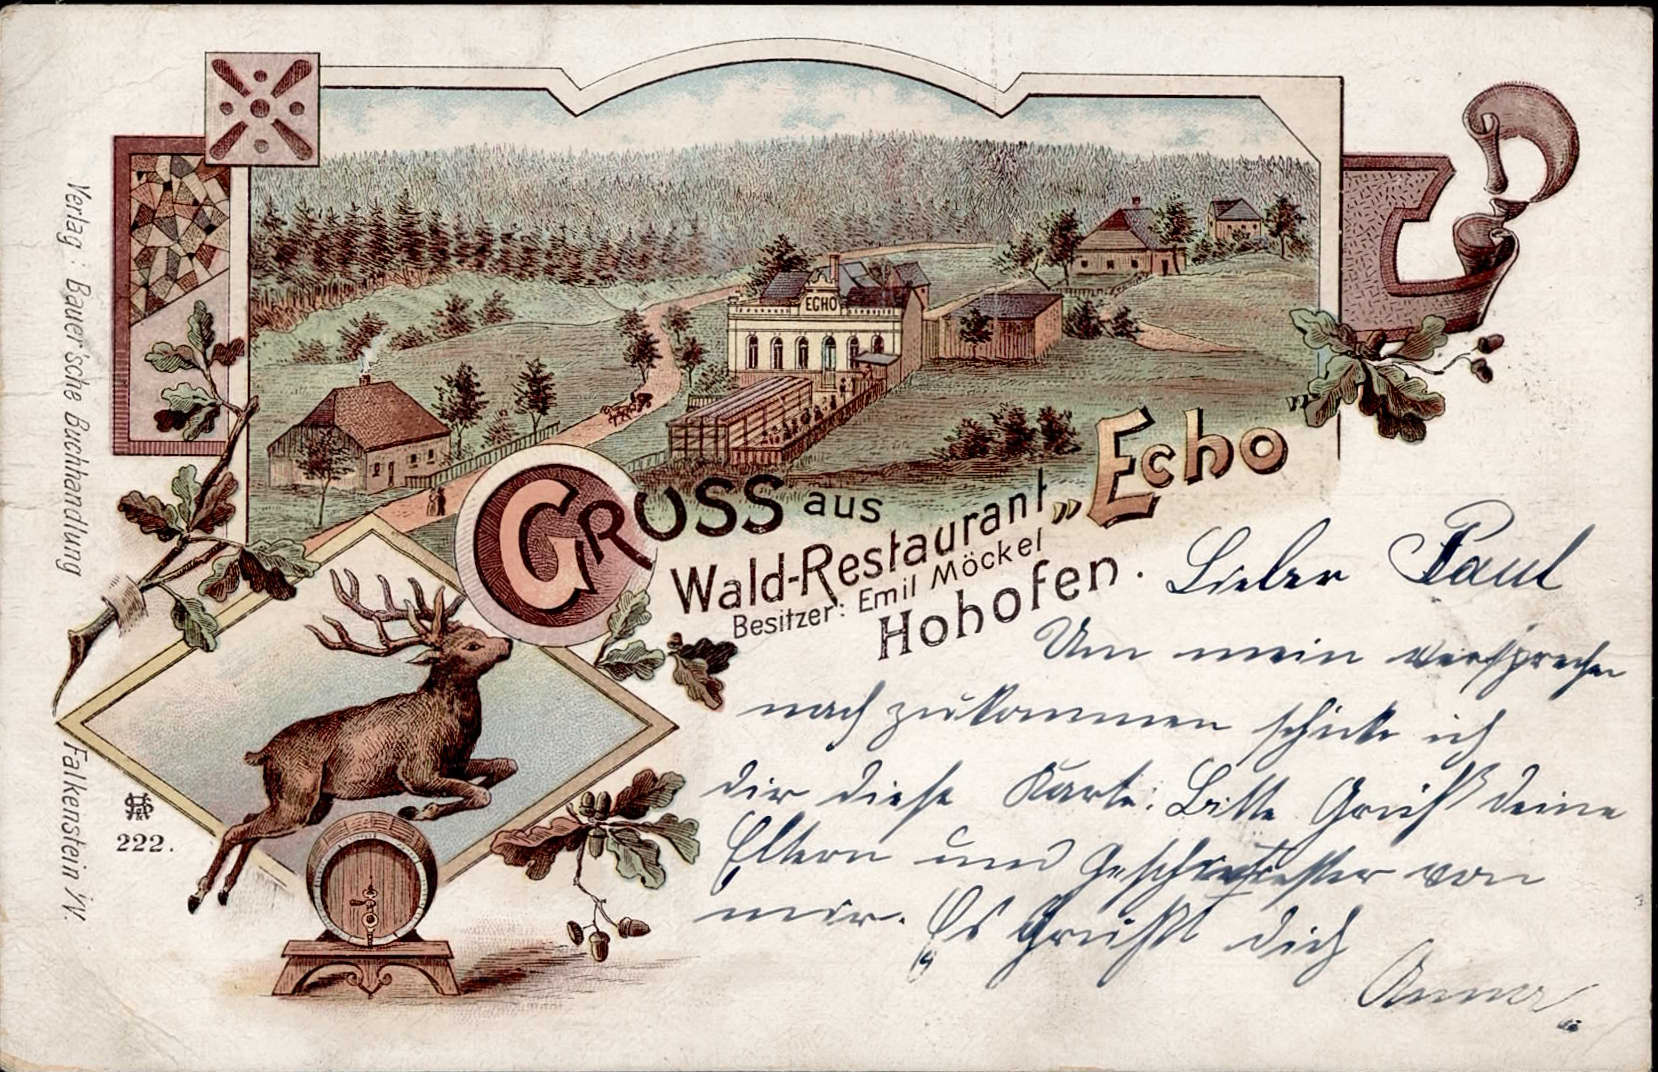 ECHO
GRUSS aus
Wald-Restaurant „Echo“
Besitzer: Emil Möckel
Hohofen.
Verlag: Bauer'sche Buchhandlung Falkenstein i/V.
222.
Lieber Paul
Um mein versprechen
nach zukommen schicke ich
dir diese Karte. Bitte Grüß deine
Eltern und Geschwister von
mir. Es Grüßt dich
Anna.